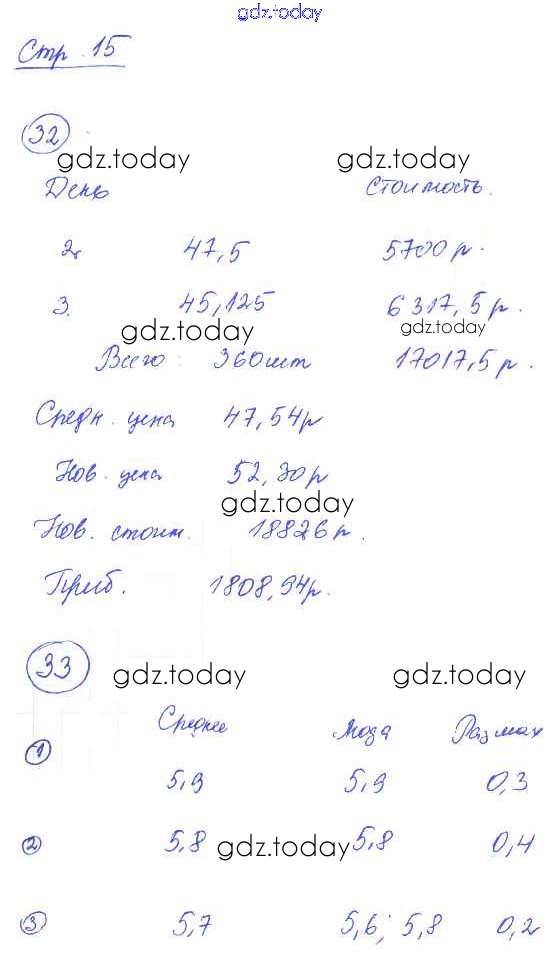 gdz.today
Стр. 15
32
gdz.today gdz.today
День Стоимость.
2. 47,5 5700 р.
3. 45,125 6317,5 р.
gdz.today gdz.today
Всего: 360 шт 17017,5 р.
Средн. цена 47,54 р
Нов. цена 52,30 р
gdz.today
Нов. стоим. 18826 р.
Приб. 1808,94 р.
33 gdz.today gdz.today
Среднее Мода Размах
1 5,9 5,9 0,3
2 5,8 gdz.today 5,8 0,4
3 5,7 5,6; 5,8 0,2